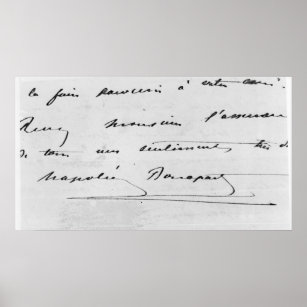 la faire parvenir à votre
Recevez monsieur l'assurance
de tous mes sentiments
Napoléon Bonaparte